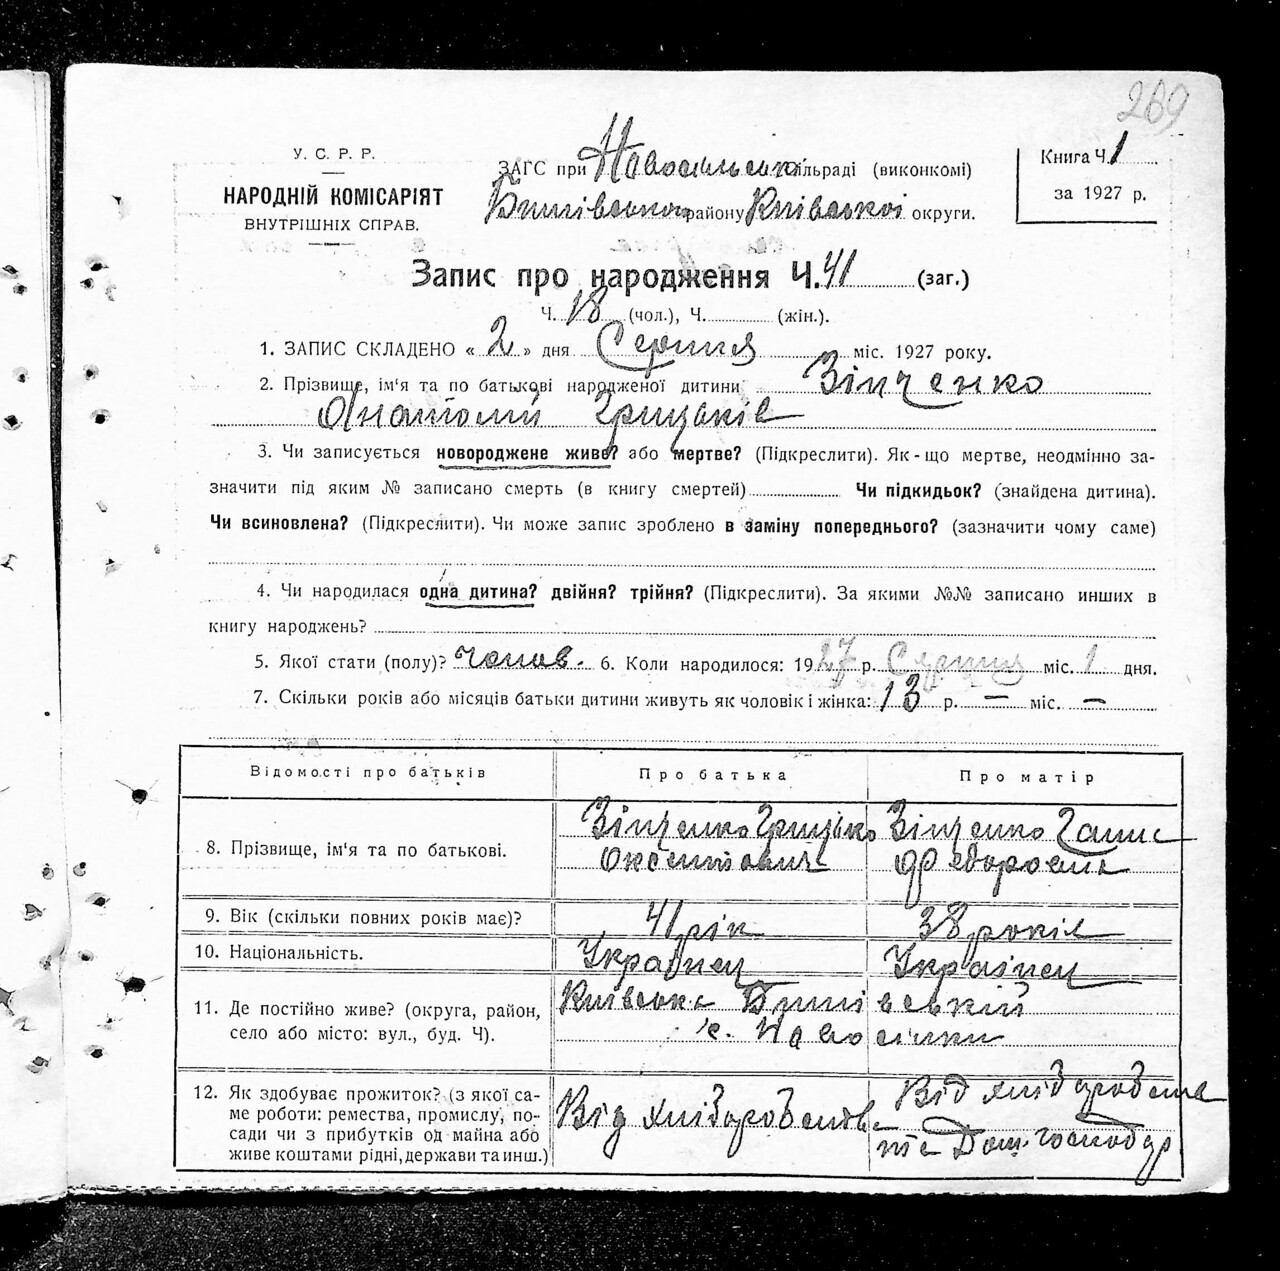 269
У. С. Р. Р.
НАРОДНІЙ КОМІСАРІЯТ
ВНУТРІШНІХ СПРАВ.
ЗАГС при Новосільській сільраді (виконкомі)
району Київської округи.
Книга Ч. 1
за 1927 р.
Запис про народження Ч. 41 (заг.)
Ч. 18 (чол.), Ч. (жін.).
1. ЗАПИС СКЛАДЕНО « 2 » дня Серпня міс. 1927 року.
2. Прізвище, ім'я та по батькові народженої дитини Зінченко
Анатолій Грицьків
3. Чи записується новороджене живе? або мертве? (Підкреслити). Як-що мертве, неодмінно за-
значити під яким № записано смерть (в книгу смертей) Чи підкидьок? (знайдена дитина).
Чи всиновлена? (Підкреслити). Чи може запис зроблено в заміну попереднього? (зазначити чому саме)
4. Чи народилася одна дитина? двійня? трійня? (Підкреслити). За якими №№ записано инших в
книгу народжень?
5. Якої стати (полу)? Чолов. 6. Коли народилося: 1927 р. Серпня міс. 1 дня.
7. Скільки років або місяців батьки дитини живуть як чоловік і жінка: 13 р. — міс. —
Відомості про батьків Про батька Про матір
8. Прізвище, ім'я та по батькові. Зінченко Грицько Зінченко
Оксентович Федоровна
9. Вік (скільки повних років має)? 41 рік 38 років
10. Національність. Українец Українец
11. Де постійно живе? (округа, район,
село або місто: вул., буд. Ч). Київська
с. Новосілки
12. Як здобуває прожиток? (з якої са-
ме роботи: ремества, промислу, по-
сади чи з прибутків од майна або
живе коштами рідні, держави та инш.)
Від хліборобства
Від хліборобства
та Дом. господар